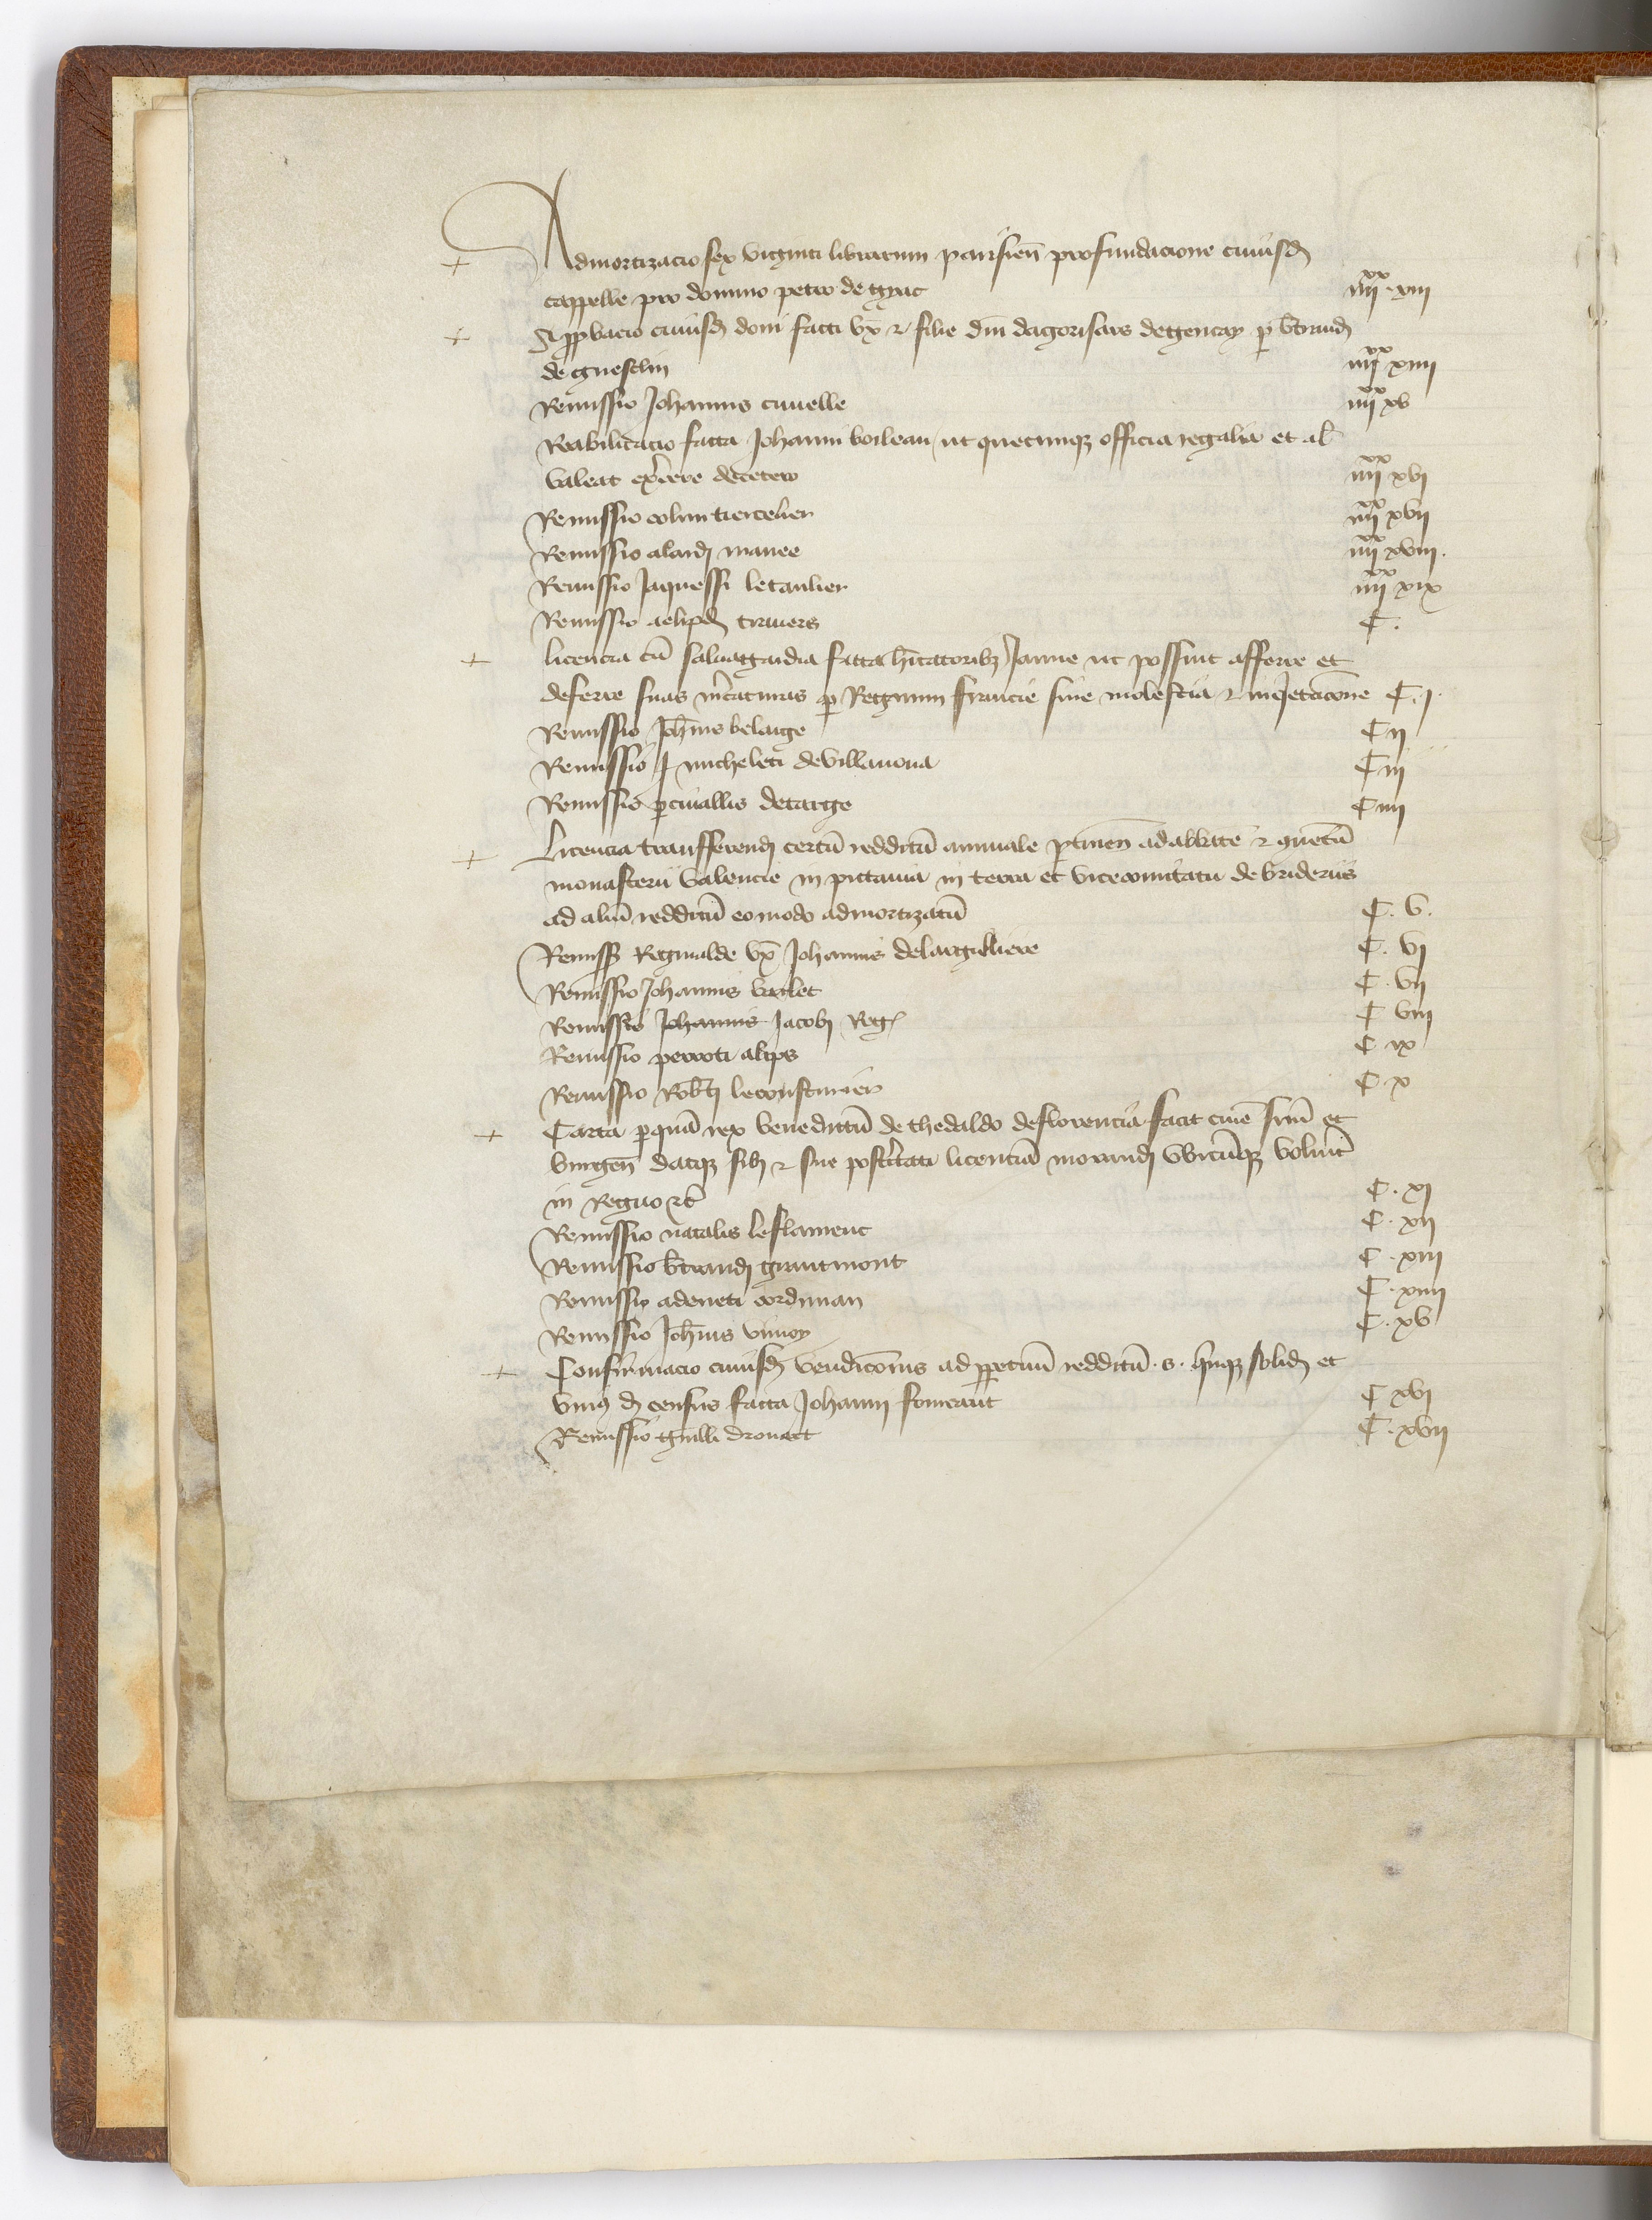 + Admortizacio sex viginti librarum parisien̄ pro fundacione cuiusd
cappelle pro domino petro de gyac iiii xx xiii
+ Approbacio cuiusd doni facti vx̄ ⁊ filie dn̄i dagorisars de gencay p b̄trand
de guesclin iiii xx xiiii
Remissio Johannis cuvelle iiii xx xv
Reabilitacio facta Johanni boileau ut quecunqz officia regalia et al̄
valeat ex̄cere decetero iiii xx xvi
Remissio colini tiercelier iiii xx xvii
Remissio alardi manee iiii xx xviii.
Remissio Jaquessi letanlier iiii xx xix
Remissio aelipd travers C.
+ licencia cū salvagardia facta h̄itatoribz Janue ut possint afferre et
deferre suas m̄caturas p Regnum francie sine molestia ⁊ inq̄etac̄one C. j.
Remissio Joh̄nis belarge C ii
Remissio micheleti de villanova C iii
Remissio p̄civallis detarge C iiii
+ Licencia transfferend certū redditū annuale p̄tinen̄ ad abbatē ⁊ ꝯventū
monasterii valencie in pictavia in terra et vicecomitatu de brideriis
ad aliū redditū eo modo admortizatū C. v.
Remiss̄ Reginalde vx̄ Johannis delargilliere C. vi
Remissio Johannis varlet C. vii
Remissio Johannis Jacobi Reḡ C viii
Remissio perroti alips C ix
Remissio Rob̄ti leconsturier C. x
+ Carta p quā rex benedictū de thedaldo de florencia facit civē suū et
burgen̄ datqz sibi ⁊ sue posteritati licenciā morandi ubicūqz volūit
in Regno ⁊c̄ C. xi
Remissio natalis leflament C. xii
Remissio b̄trandi grantmont C. xiii
Remissio adeneti cordouan C. xiiii
Remissio Joh̄nis vimoy C. xv
+ Confirmacio cuiusd vendic̄onis ad ppetuū redditū .s. q̄nqz solid et
unius d census facta Johanni fomeant C xvi
Remissio guilli drouart C. xvii